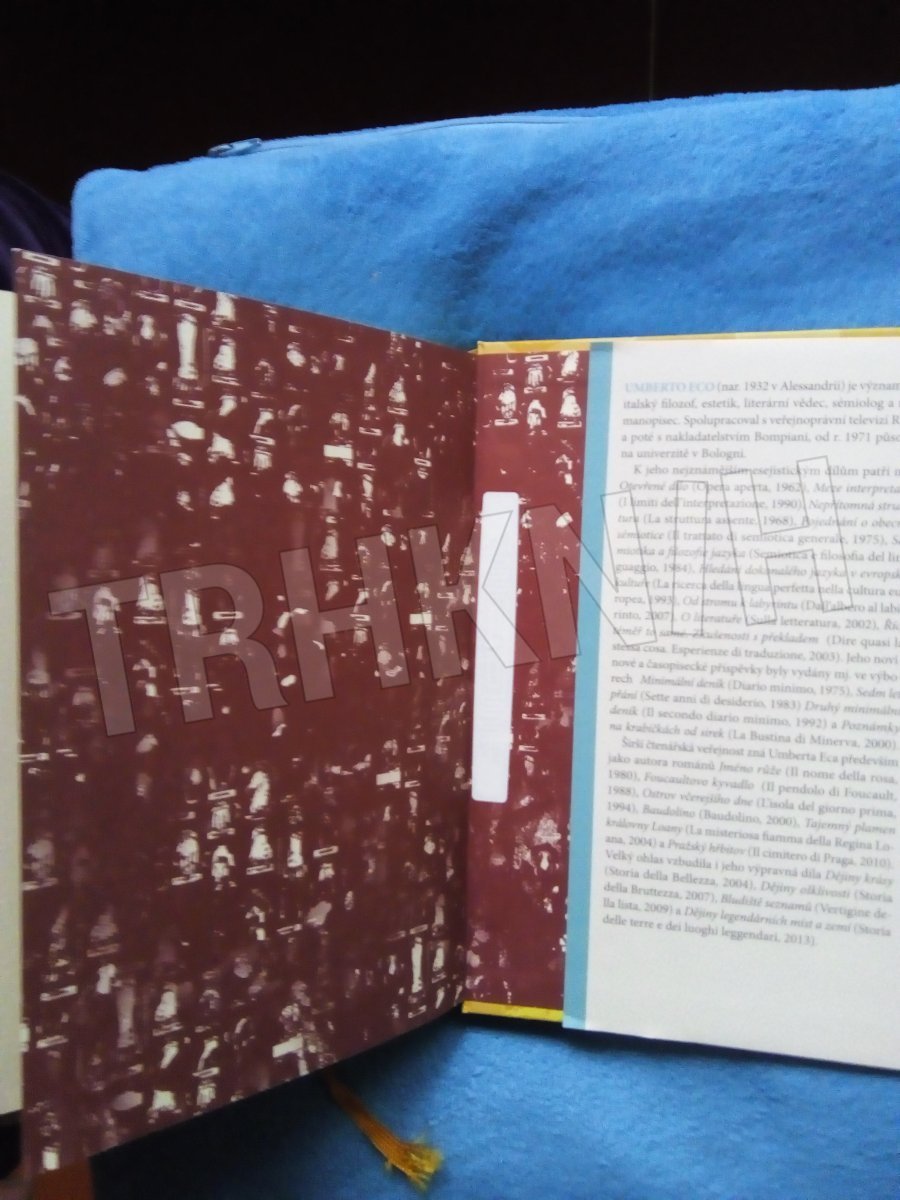 UMBERTO ECO (nar. 1932 v Alessandrii) je význam
italský filozof, estetik, literární vědec, sémiolog a
manopisec. Spolupracoval s veřejnoprávní televizí R
a poté s nakladatelstvím Bompiani, od r. 1971 půso
na univerzitě v Bologni.
K jeho nejznámějším esejistickým dílům patří
Otevřené dílo (Opera aperta, 1962), Meze interpreta
(I limiti dell'interpretazione, 1990), Nepřítomná stru
tura (La struttura assente, 1968), Pojednání o obecn
sémiotice (Il trattato di semiotica generale, 1975), Sé
miotika a filozofie jazyka (Semiotica e filosofia del lin
guaggio, 1984), Hledání dokonalého jazyka v evropsk
kultuře (La ricerca della lingua perfetta nella cultura eu
ropea, 1993), Od stromu k labyrintu (Dall'albero al labi
rinto, 2007), O literatuře (Sulla letteratura, 2002), Říc
téměř to samé. Zkušenosti s překladem (Dire quasi la
stessa cosa. Esperienze di traduzione, 2003). Jeho novi
nové a časopisecké příspěvky byly vydány mj. ve výbo
rech Minimální deník (Diario minimo, 1975), Sedm let
přání (Sette anni di desiderio, 1983) Druhý minimáln
deník (Il secondo diario minimo, 1992) a Poznámky
na krabičkách od sirek (La Bustina di Minerva, 2000).
Širší čtenářská veřejnost zná Umberta Eca především
jako autora románů Jméno růže (Il nome della rosa,
1980), Foucaultovo kyvadlo (Il pendolo di Foucault,
1988), Ostrov včerejšího dne (L'isola del giorno prima,
1994), Baudolino (Baudolino, 2000), Tajemný plamen
královny Loany (La misteriosa fiamma della Regina Lo-
ana, 2004) a Pražský hřbitov (Il cimitero di Praga, 2010).
Velký ohlas vzbudila i jeho výpravná díla Dějiny krásy
(Storia della Bellezza, 2004), Dějiny ošklivosti (Storia
della Bruttezza, 2007), Bludiště seznamů (Vertigine de-
lla lista, 2009) a Dějiny legendárních míst a zemí (Storia
delle terre e dei luoghi leggendari, 2013).
TRHKNIH